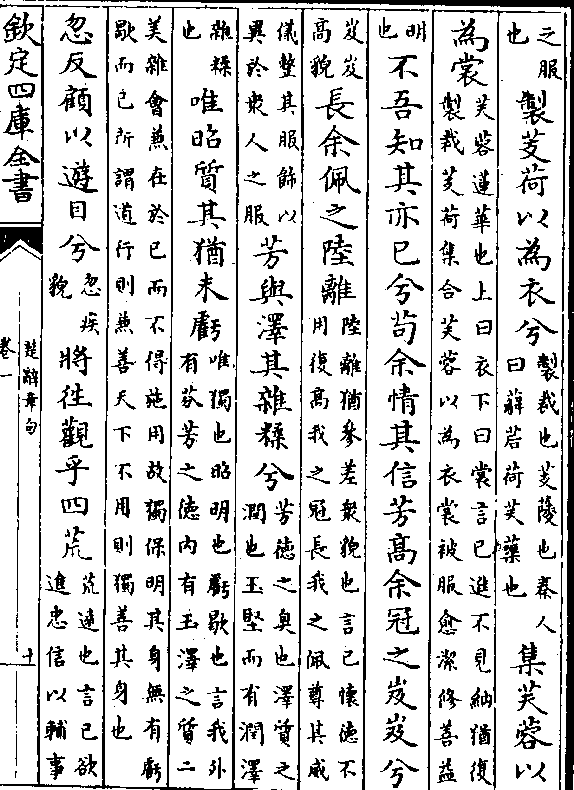 之服也製芰荷以為衣兮製裁也芰蔆也秦人曰薢茩荷芙蕖也集芙蓉以
為裳芙蓉蓮華也上曰衣下曰裳言已進不見納猶復製裁芰荷集合芙蓉以為衣裳被服愈潔修善益
明也不吾知其亦已兮苟余情其信芳高余冠之岌岌兮
岌岌高貌長余佩之陸離陸離猶參差衆貌也言已懷德不用復高我之冠長我之佩尊其威
儀整其服飾以異於衆人之服芳與澤其雜糅兮芳德之臭也澤質之潤也玉堅而有潤澤
雜糅也唯昭質其猶未虧唯獨也昭明也虧歇也言我外有芬芳之德内有玉澤之質二
美雜會兼在於已而不得施用故獨保明其身無有虧歇而已所謂道行則兼善天下不用則獨善其身也
忽反顧以遊目兮忽疾貌將往觀乎四荒荒遠也言已欲進忠信以輔事
欽定四庫全書
楚辭章句
卷一
十